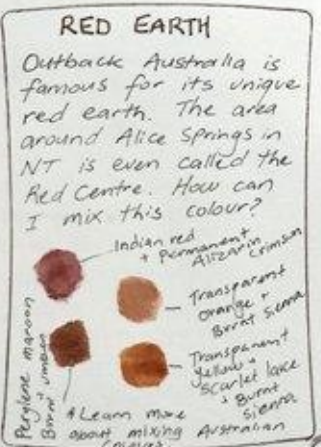 RED EARTH
Outback Australia is
famous for its unique
red earth. The area
around Alice Springs in
NT is even called the
Red Centre. How can
I mix this colour?
Indian red
+ Permanent
Alizarin Crimson
Transparent
orange +
Burnt Sienna
Transparent
yellow +
Scarlet lake
+ Burnt
Sienna
Perylene maroon
Burnt umber
Learn more
about mixing Australian
colours